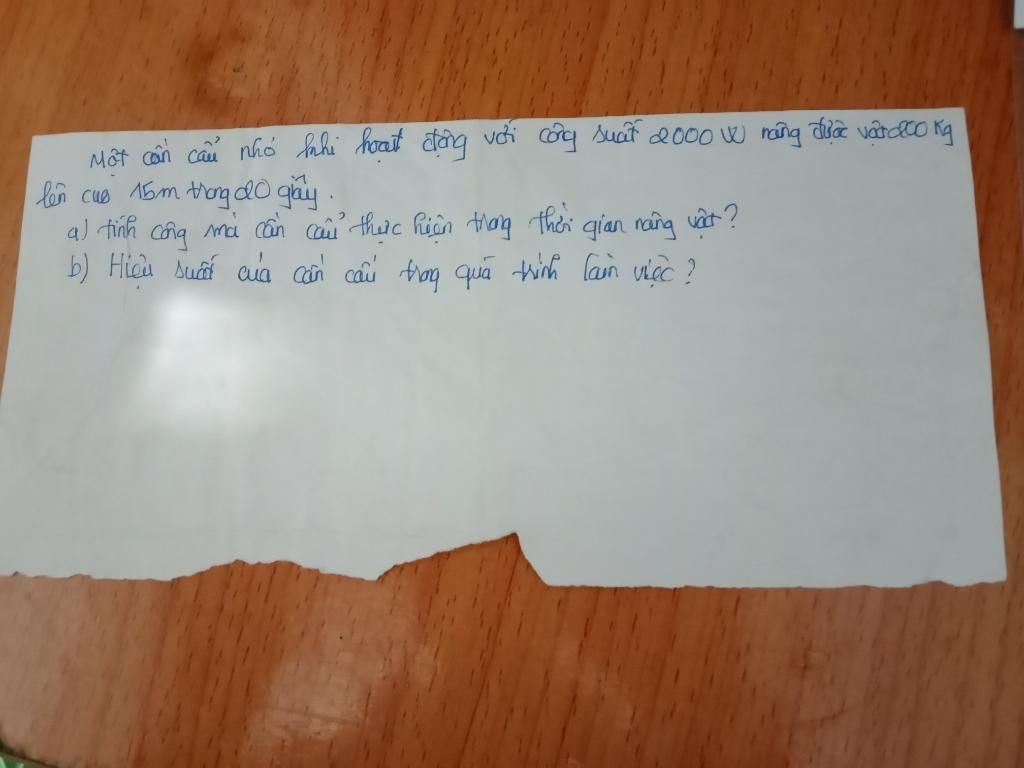 Một cần cẩu nhỏ khi hoạt động với công suất 2000 W nâng được vật 200 Kg
lên cao 15m trong 20 giây.
a) tính công mà cần cẩu thực hiện trong thời gian nâng vật?
b) Hiệu suất của cần cẩu trong quá trình làm việc?